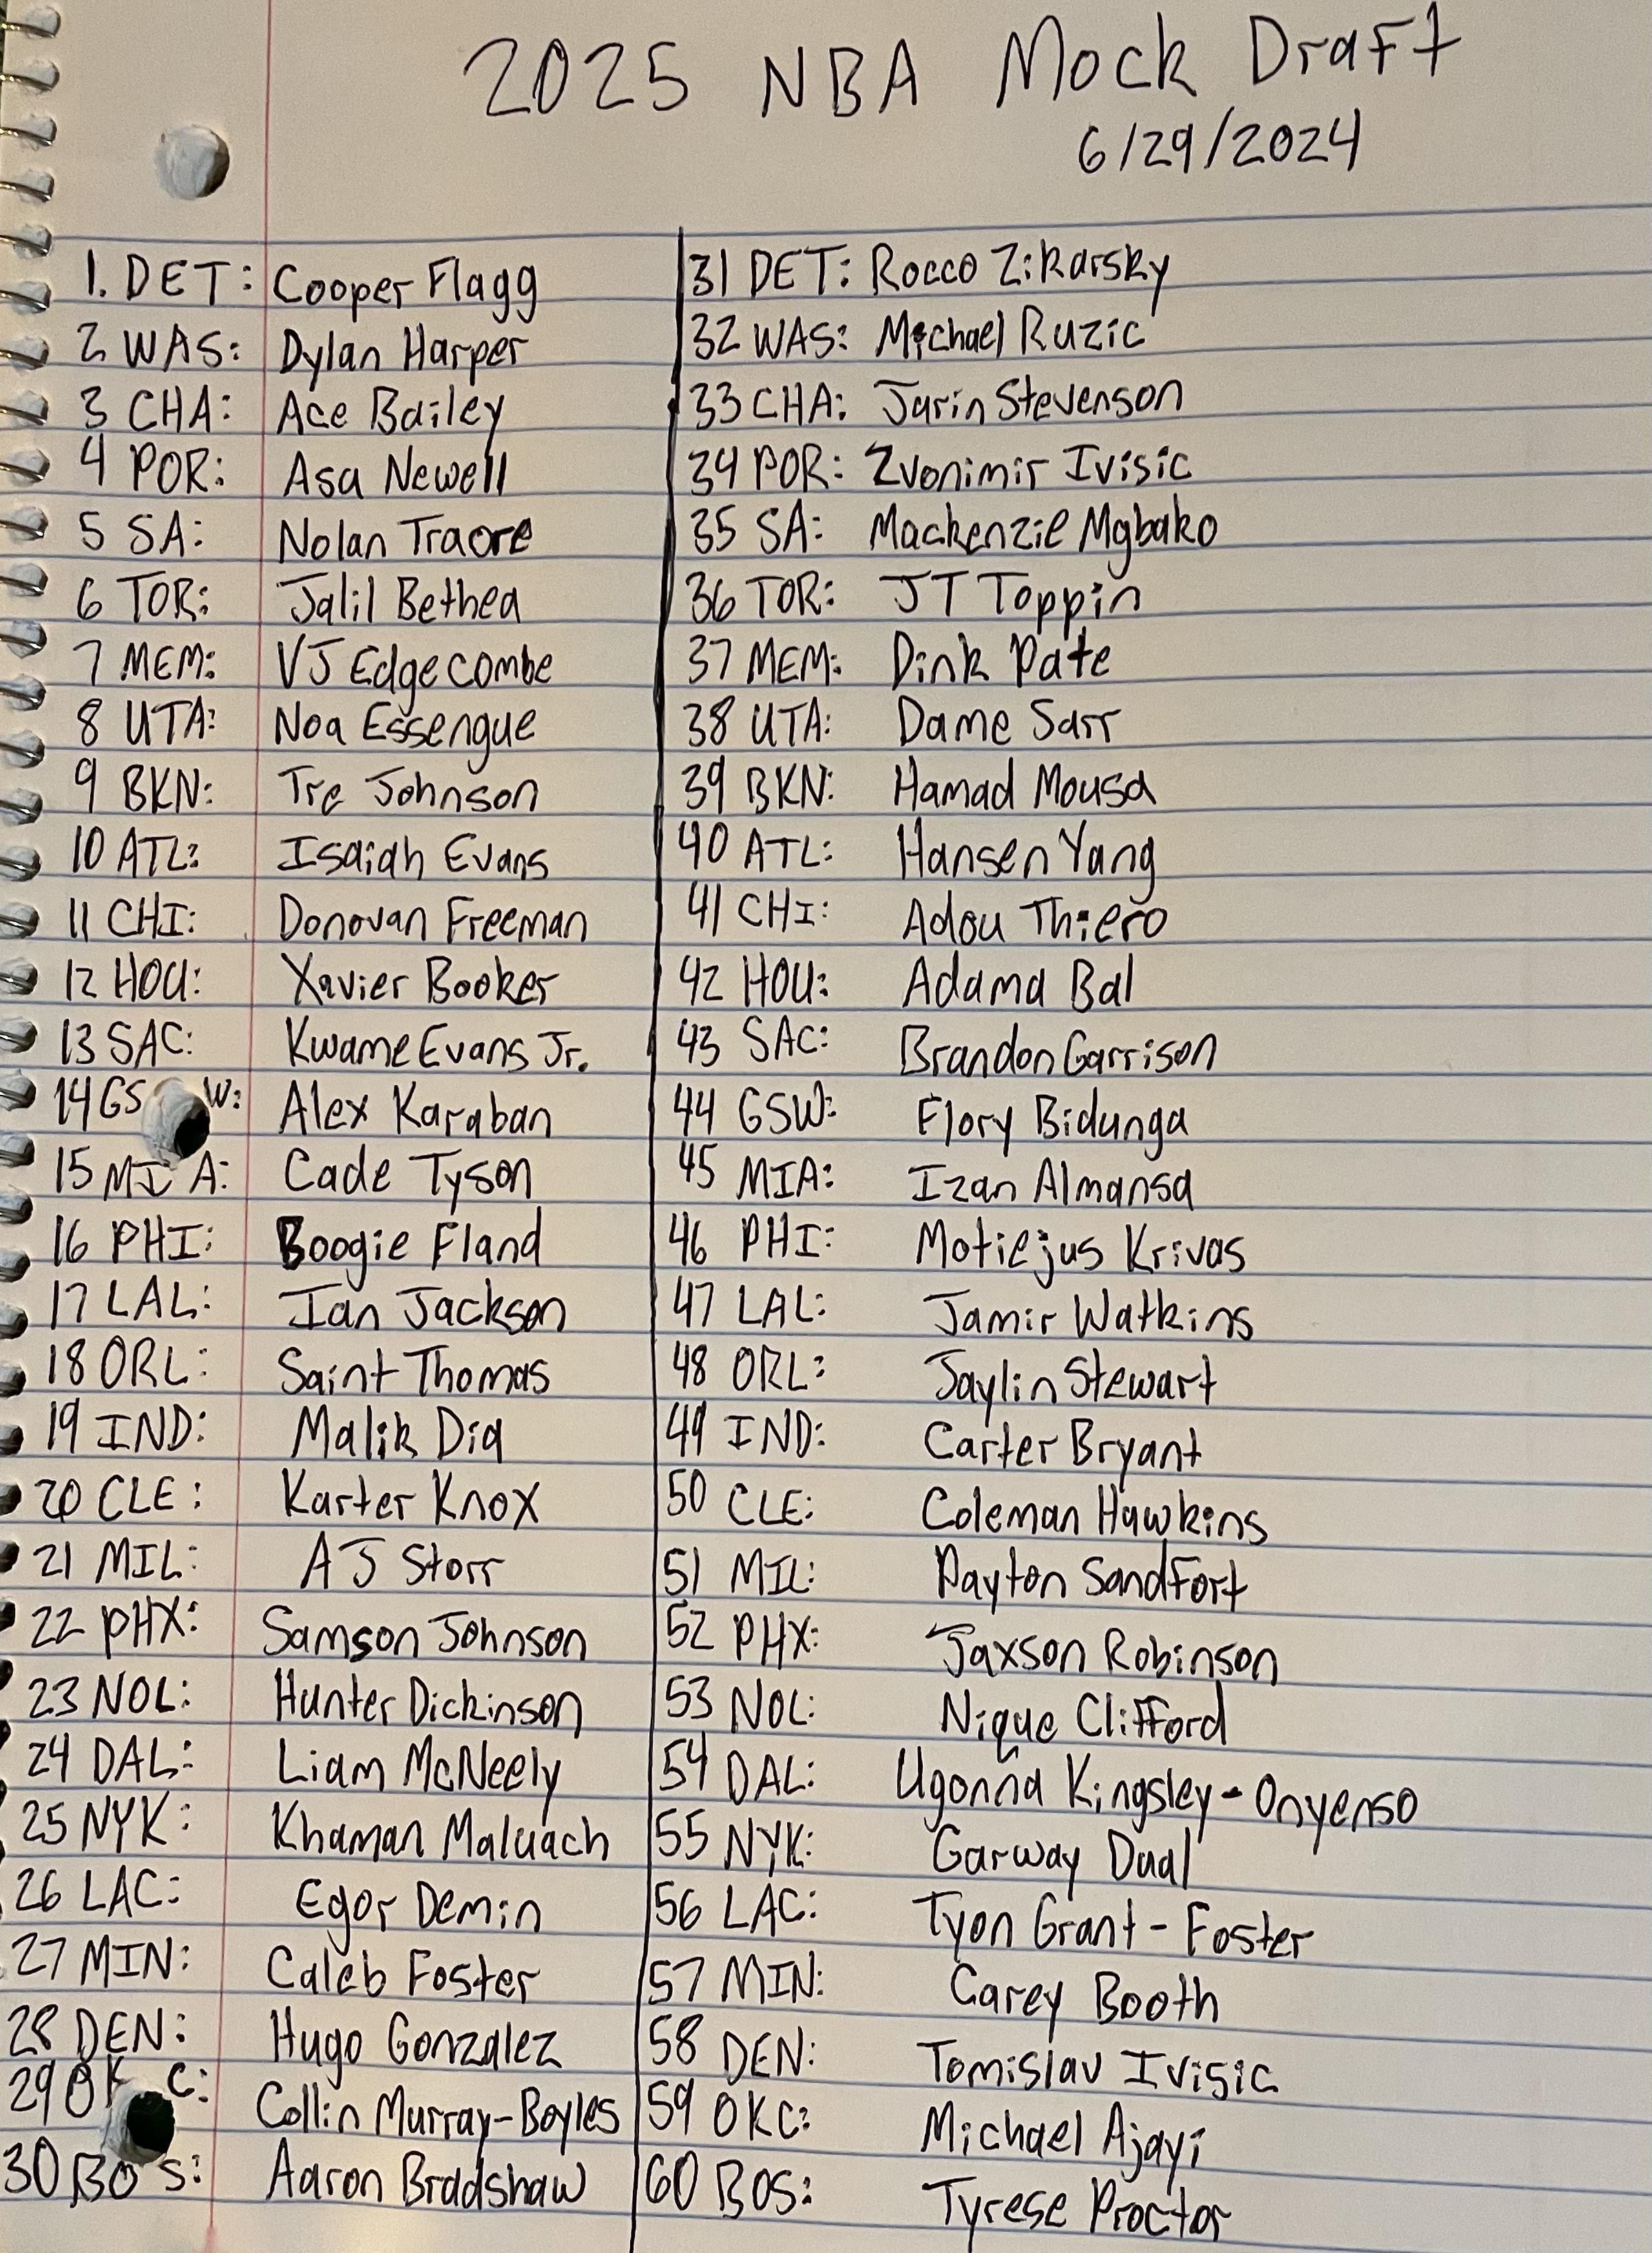 2025 NBA Mock Draft
6/29/2024
1. DET: Cooper Flagg
2 WAS: Dylan Harper
3 CHA: Ace Bailey
4 POR: Asa Newell
5 SA: Nolan Traore
6 TOR: Jalil Bethea
7 MEM: VJ Edgecombe
8 UTA: Noa Essengue
9 BKN: Tre Johnson
10 ATL: Isaiah Evans
11 CHI: Donovan Freeman
12 HOU: Xavier Booker
13 SAC: Kwame Evans Jr.
14 GSW: Alex Karaban
15 MIA: Cade Tyson
16 PHI: Boogie Fland
17 LAL: Ian Jackson
18 ORL: Saint Thomas
19 IND: Malik Dia
20 CLE: Karter Knox
21 MIL: AJ Storr
22 PHX: Samson Johnson
23 NOL: Hunter Dickinson
24 DAL: Liam McNeely
25 NYK: Khaman Maluach
26 LAC: Egor Demin
27 MIN: Caleb Foster
28 DEN: Hugo Gonzalez
29 OKC: Collin Murray-Boyles
30 BOS: Aaron Bradshaw
31 DET: Rocco Zikarsky
32 WAS: Michael Ruzic
33 CHA: Jarin Stevenson
34 POR: Zvonimir Ivisic
35 SA: Mackenzie Mgbako
36 TOR: JT Toppin
37 MEM: Dink Pate
38 UTA: Dame Sarr
39 BKN: Hamad Mousa
40 ATL: Hansen Yang
41 CHI: Adou Thiero
42 HOU: Adama Bal
43 SAC: Brandon Garrison
44 GSW: Flory Bidunga
45 MIA: Izan Almansa
46 PHI: Motiejus Krivas
47 LAL: Jamir Watkins
48 ORL: Jaylin Stewart
49 IND: Carter Bryant
50 CLE: Coleman Hawkins
51 MIL: Payton Sandfort
52 PHX: Jaxson Robinson
53 NOL: Nique Clifford
54 DAL: Ugonna Kingsley-Onyenso
55 NYK: Garway Dual
56 LAC: Tyon Grant-Foster
57 MIN: Carey Booth
58 DEN: Tomislav Ivisic
59 OKC: Michael Ajayi
60 BOS: Tyrese Proctor